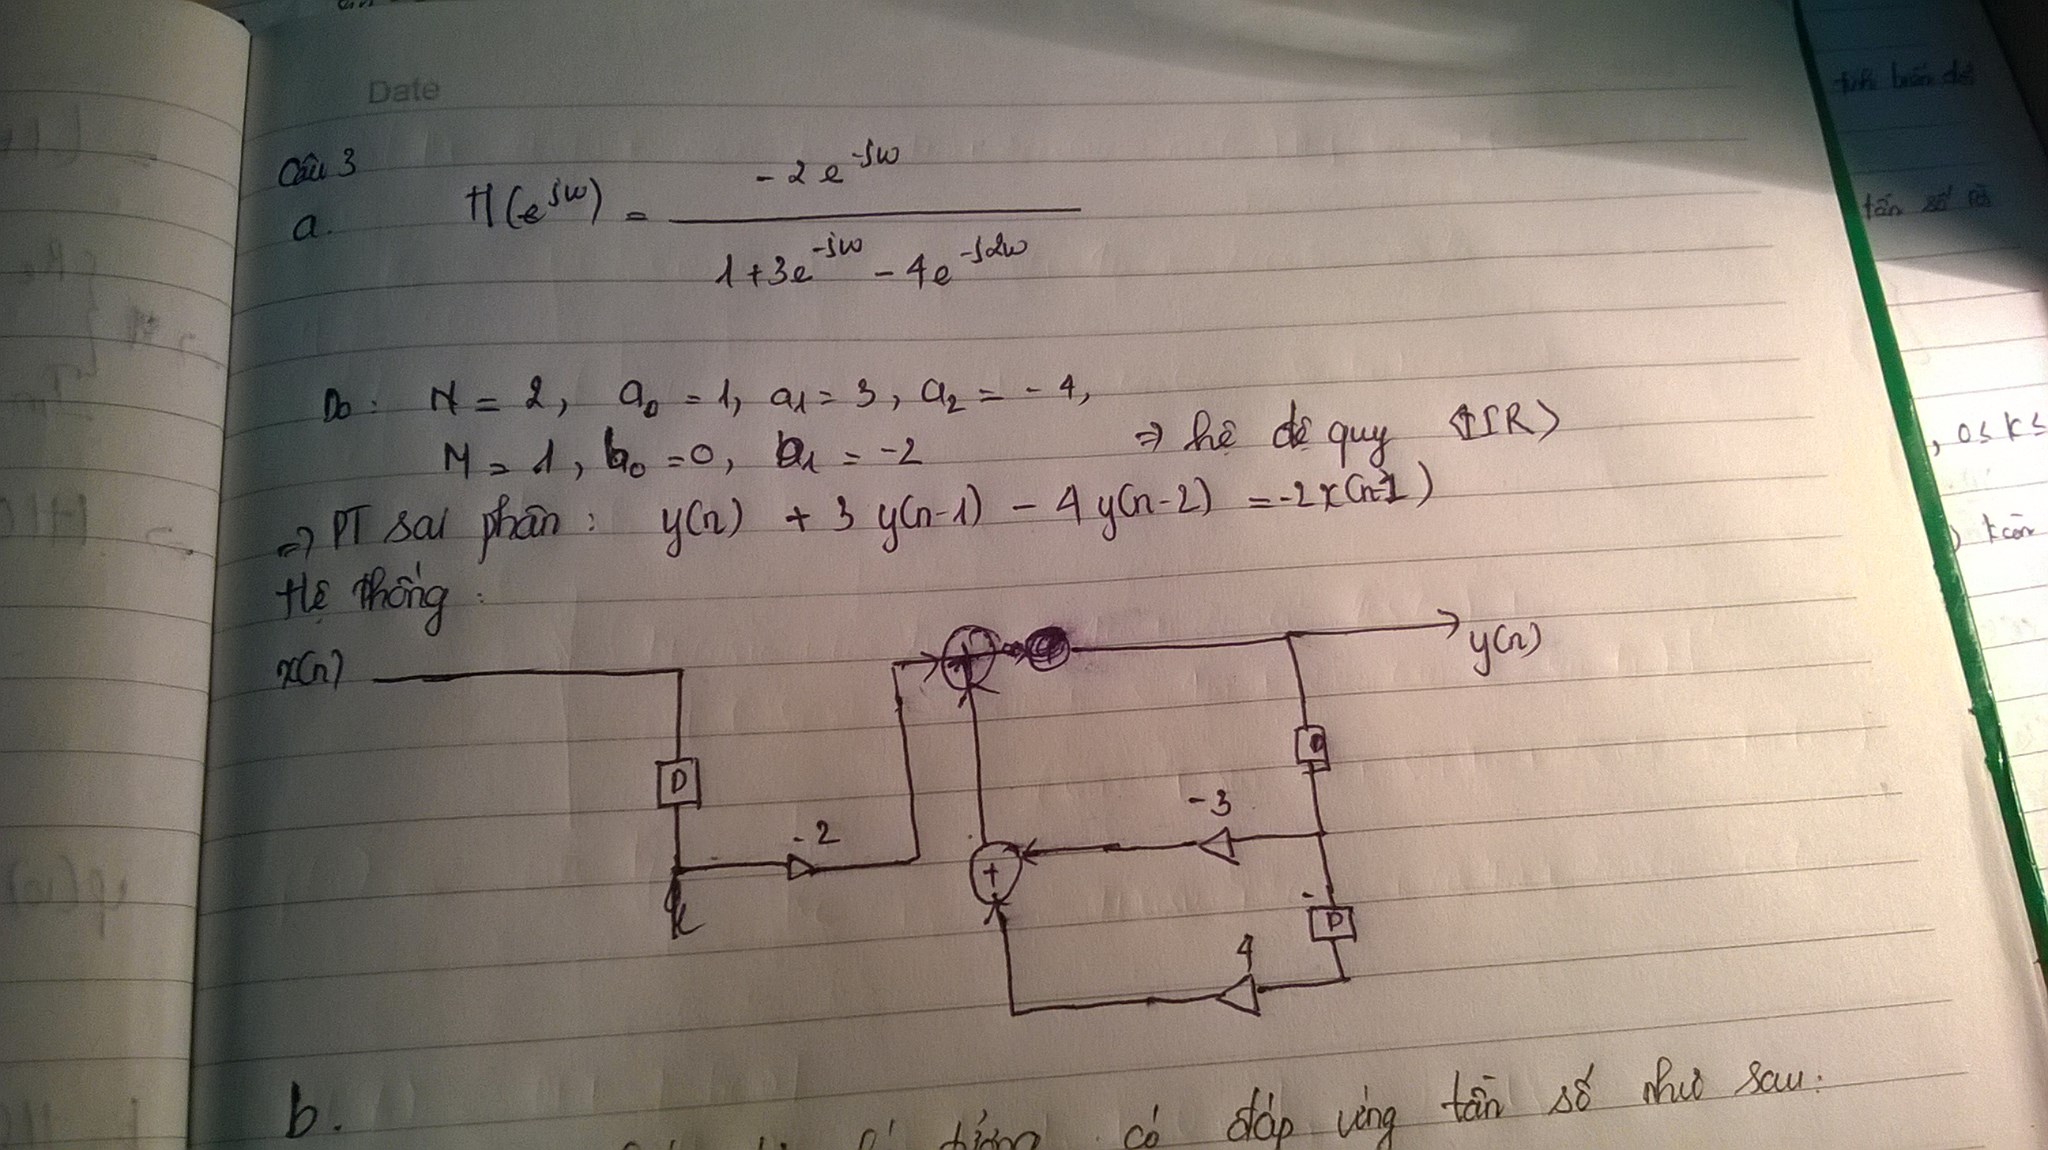 Date
Câu 3
a. H(e^jω) = -2e^-jω / 1+3e^-jω - 4e^-j2ω
Do: N = 2, a0 = 1, a1 = 3, a2 = -4,
M = 1, b0 = 0, b1 = -2 ⇒ hệ đệ quy <IIR>
⇒ PT sai phân: y(n) + 3y(n-1) - 4y(n-2) = -2x(n-1)
Hệ thống:
x(n)
+
y(n)
D
D
-2
-3
+
D
4
b.
có đáp ứng tần số như sau:
tần số
, 0≤k≤